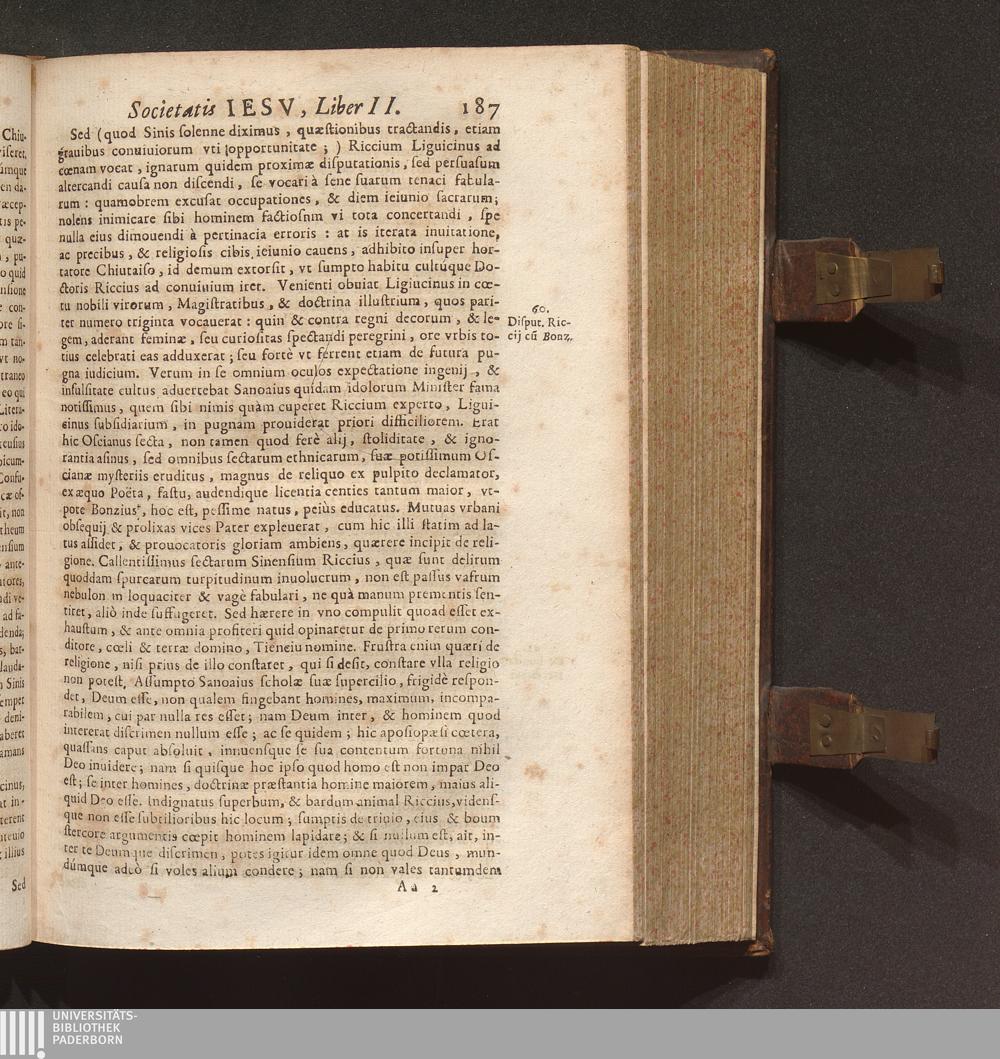 Societatis IESV, Liber II. 187
Sed (quod Sinis ſolenne diximus, quæſtionibus tractandis, etiam
grauibus conuiuiorum vti opportunitate;) Riccium Liguicinus ad
cœnam vocat, ignarum quidem proximæ diſputationis, ſed perſuaſum
altercandi cauſa non diſcendi, ſe vocari à ſene ſuarum tenaci fabula-
rum: quamobrem excuſat occupationes, & diem ieiunio ſacrarum;
nolens inimicare ſibi hominem factioſnm vi tota concertandi, ſpe
nulla eius dimouendi à pertinacia erroris: at is iterata inuitatione,
ac precibus, & religioſis cibis ieiunio cauens, adhibito inſuper hor-
tatore Chiutaiſo, id demum extorſit, vt ſumpto habitu cultúque Do-
ctoris Riccius ad conuiuium iret. Venienti obuiat Ligiucinus in cœ-
tu nobili virorum, Magiſtratibus, & doctrina illuſtrium, quos pari-
ter numero triginta vocauerat: quin & contra regni decorum, & le-
gem, aderant feminæ, ſeu curioſitas ſpectandi peregrini, ore vrbis to-
tius celebrati eas adduxerat; ſeu fortè vt ferrent etiam de futura pu-
gna iudicium. Verum in ſe omnium oculos expectatione ingenij, &
inſulſitate cultus aduertebat Sanoaius quidam idolorum Miniſter fama
notiſſimus, quem ſibi nimis quàm cuperet Riccium experto, Ligui-
cinus ſubſidiarium, in pugnam prouiderat priori difficiliorem. Erat
hic Oſcianus ſecta, non tamen quod ferè alij, ſtoliditate, & igno-
rantia aſinus, ſed omnibus ſectarum ethnicarum, ſuæ potiſſimum Oſ-
cianæ myſteriis eruditus, magnus de reliquo ex pulpito declamator,
ex æquo Poëta, faſtu, audendique licentia centies tantum maior, vt-
pote Bonzius, hoc eſt, peſſime natus, peiùs educatus. Mutuas vrbani
obſequij & prolixas vices Pater expleuerat, cum hic illi ſtatim ad la-
tus aſſidet, & prouocatoris gloriam ambiens, quærere incipit de reli-
gione. Callentiſſimus ſectarum Sinenſium Riccius, quæ ſunt delirum
quoddam ſpurcarum turpitudinum inuolucrum, non eſt paſſus vafrum
nebulon m loquaciter & vagè fabulari, ne quà manum prementis ſen-
tiret, aliò inde ſuffugeret. Sed hærere in vno compulit quoad eſſet ex-
hauſtum, & ante omnia profiteri quid opinaretur de primo rerum con-
ditore, cœli & terræ domino, Tieneiu nomine. Fruſtra enim quæri de
religione, niſi prius de illo conſtaret, qui ſi deſit, conſtare vlla religio
non poteſt. Aſſumpto Sanoaius ſcholæ ſuæ ſupercilio, frigidè reſpon-
det, Deum eſſe, non qualem fingebant homines, maximum, incompa-
rabilem, cui par nulla res eſſet; nam Deum inter, & hominem quod
intererat diſcrimen nullum eſſe; ac ſe quidem; hic apoſiopæſi cœtera,
quaſſans caput abſoluit, innuenſque ſe ſua contentum fortuna nihil
Deo inuidere; nam ſi quiſque hoc ipſo quod homo eſt non impar Deo
eſt; ſe inter homines, doctrinæ præſtantia homine maiorem, maius ali-
quid Deo eſſe. Indignatus ſuperbum, & bardum animal Riccius, vidensſ-
que non eſſe ſubtilioribus hic locum; ſumptis de triuio, eius & boum
ſtercore argumentis cœpit hominem lapidare; & ſi nullum eſt, ait, in-
ter te Deumque diſcrimen, potes igitur idem omne quod Deus, mun-
dúmque adeò ſi voles alium condere; nam ſi non vales tantumdem
Aa 2
60.
Diſput. Ric-
cij cũ Bonz.
Chiu-
Sed
UNIVERSITÄTS-
BIBLIOTHEK
PADERBORN